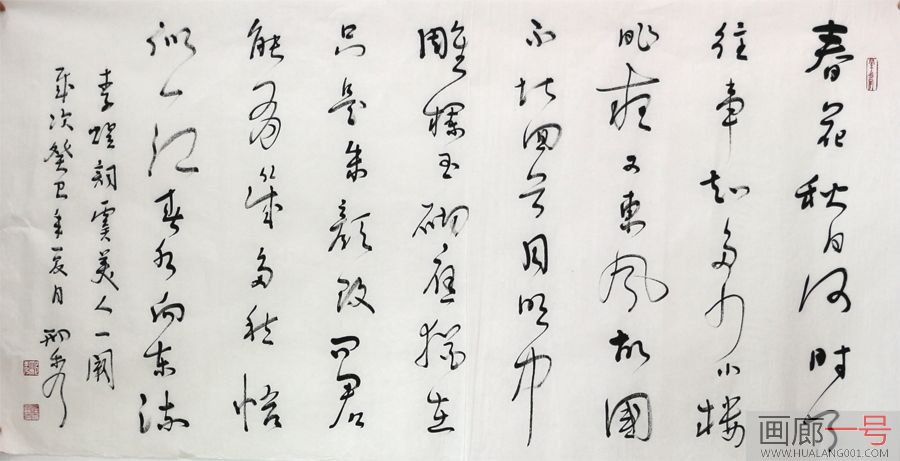 春花秋月何时了
往事知多少小楼
昨夜又東風故國
不堪回首月明中
雕欄玉砌應猶在
只是朱顏改問君
能有幾多愁恰
似一江春水向東流
李煜詞虞美人一闋
歲次癸卯年夏月
画廊一号
WWW.HUALANG001.COM